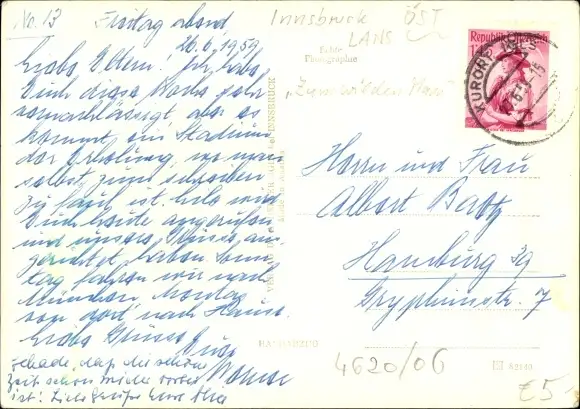 No. 13 Freitag abend,
26.6.1959
Liebe Eltern! Ich habe
Euch diese Woche sehr
vernachlässigt, aber es
kommt ein Stadium
der Erholung, wo man
selbst zum schreiben
zu faul ist. hat
Euch heute angerufen
und unsere Grüsse aus-
gerichtet, haben Sonn-
tag fahren wir nach
München, Montag
von dort nach Hause.
Liebe Grüsse Eure
Schade, daß die schöne
Zeit schon wieder vorbei
ist! Liebe Grüße Eure
Innsbruck ÖST
LANS
Echte
Photographie
"Zum wilden Mann"
Republik Österreich
KURORT IGLS
Herrn und Frau
Albert
Hamburg 39
Gryphiusstr. 7
INNSBRUCK
4620/06
62140
£5.-